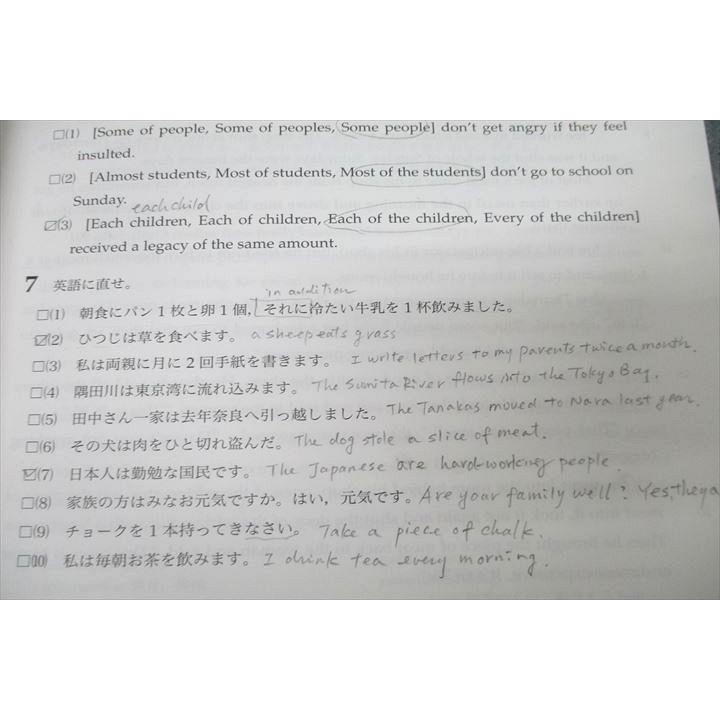 □(1) [Some of people, Some of peoples, Some people] don't get angry if they feel
insulted.
□(2) [Almost students, Most of students, Most of the students] don't go to school on
Sunday. each child
☑(3) [Each children, Each of children, Each of the children, Every of the children]
received a legacy of the same amount.
7 英語に直せ。
in addition
□(1) 朝食にパン1枚と卵1個,それに冷たい牛乳を1杯飲みました。
☑(2) ひつじは草を食べます。 a sheep eats grass
□(3) 私は両親に月に2回手紙を書きます。 I write letters to my parents twice a month.
□(4) 隅田川は東京湾に流れ込みます。 The Sumita River flows into the Tokyo Bay.
□(5) 田中さん一家は去年奈良へ引っ越しました。 The Tanakas moved to Nara last year.
□(6) その犬は肉をひと切れ盗んだ。 The dog stole a slice of meat.
☑(7) 日本人は勤勉な国民です。 The Japanese are hard-working people.
□(8) 家族の方はみなお元気ですか。はい,元気です。 Are your family well? Yes, they a
□(9) チョークを1本持ってきなさい。 Take a piece of chalk.
□(10) 私は毎朝お茶を飲みます。 I drink tea every morning.